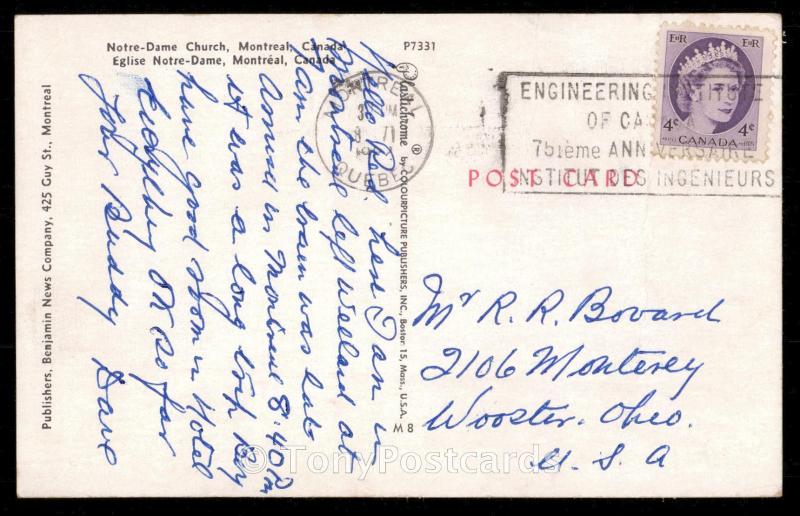 Notre-Dame Church, Montreal, Canada
Eglise Notre-Dame, Montréal, Canada
P7331
Publishers, Benjamin News Company, 425 Guy St., Montreal
Plastichrome ® by COLOURPICTURE PUBLISHERS, INC., Boston 15, Mass., U.S.A.
M 8
POST CARD
MONTREAL
QUEBEC
ENGINEERING INSTITUTE
OF CANADA
75ième ANNIVERSAIRE
INSTITUT DES INGENIEURS
EIIR EIIR
4c 4c
CANADA
Hello Red. here I am in
Montreal left Welland at
7am the train was late
Arrived in Montreal 8:40 Pm
it was a long trip Boy
have good room in Hotel
Everything OK so far
Your Buddy Dave
Mr R. R. Bovard
2106 Monterey
Wooster. Ohio.
U. S. A
© TonyPostcards